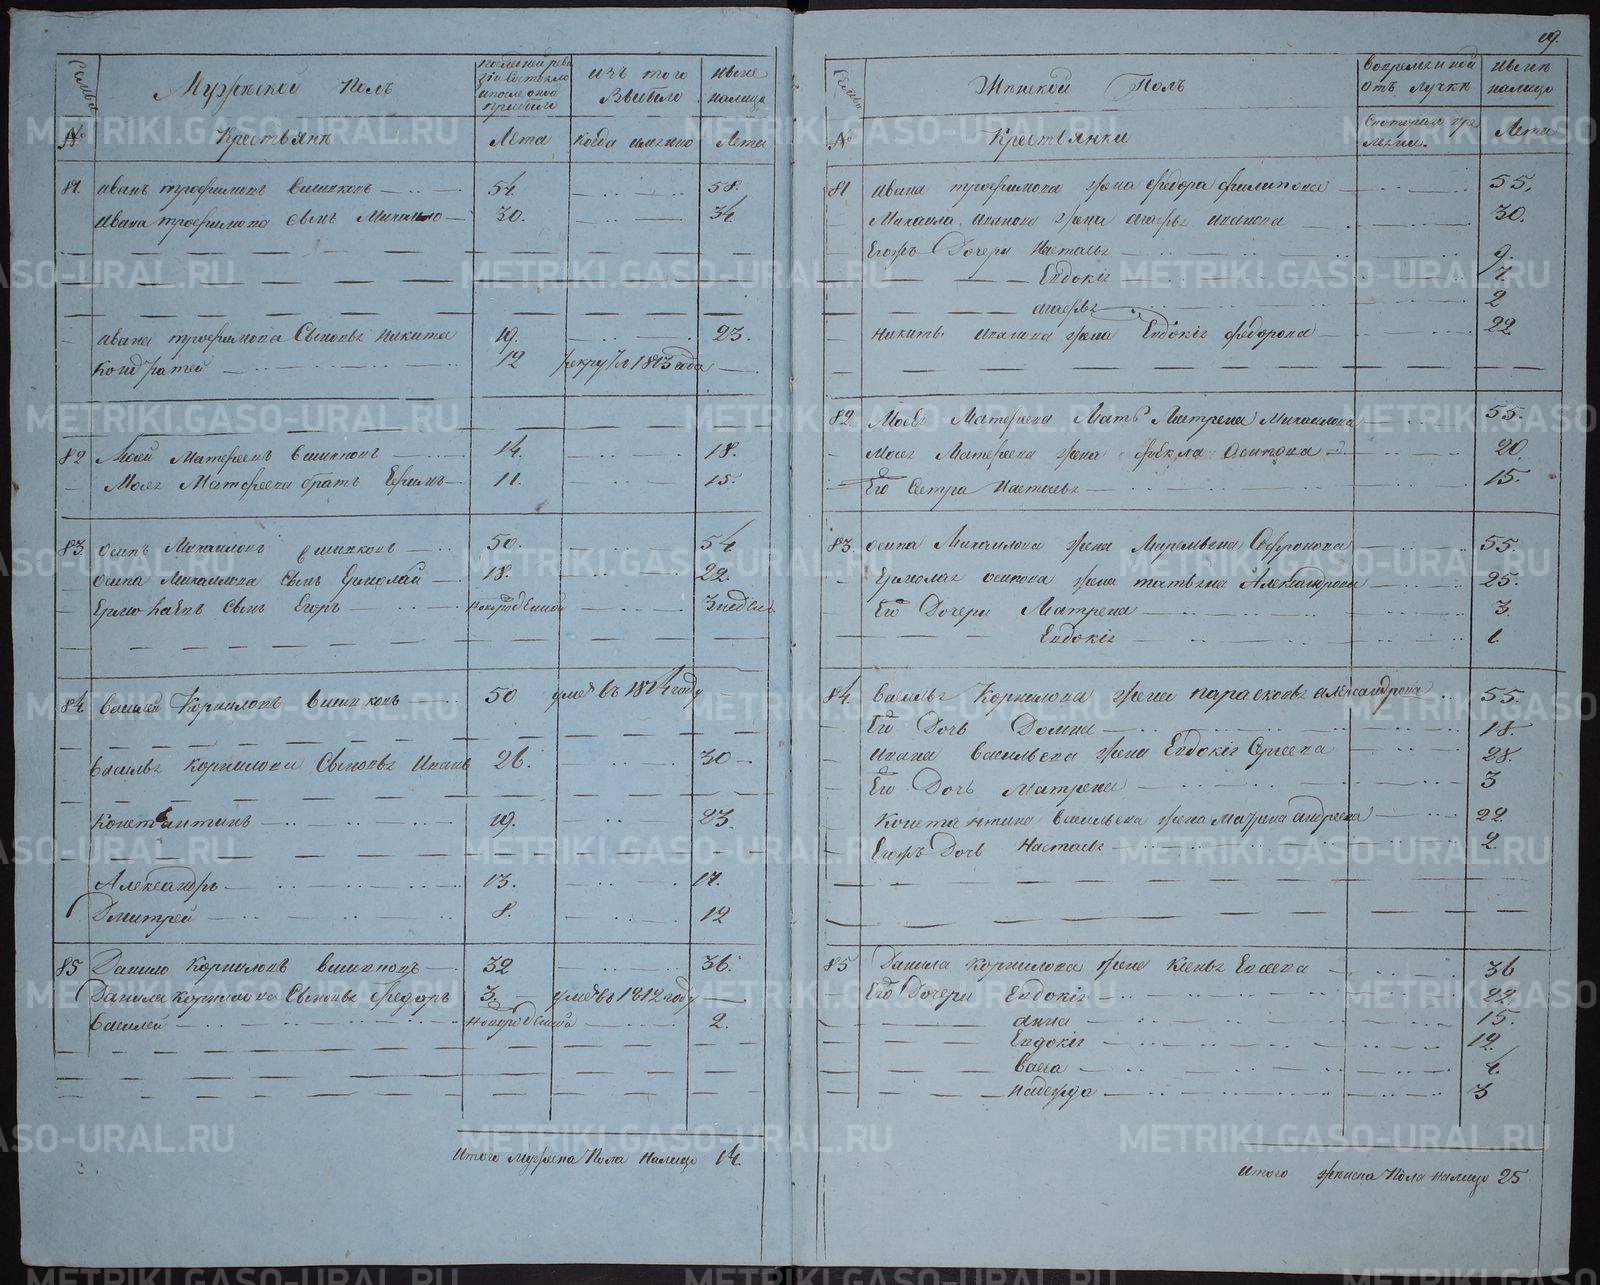 19.
Семьи
Мужеской Полъ
последней реви
зiи состояло
и после оной
прибыло
изъ того
Выбыло
ныне
налицо
№
Крестьянъ
Лета
Когда именно
Лета
81 иванъ трофимовъ 54. 58.
ивана трофимова сынъ Михайло 30. 34.
ивана трофимова Сыновья никита 19. 23.
Кондратей 12 рекру 1813 года
82 Матвеевъ 14. 18.
Матвеева братъ Ефимъ 11. 15.
83. осипъ Михайловъ 50. 54.
осипа Михайлова Сынъ Ермолай 18. 22.
Ермолаевъ Сынъ Егоръ новорожденной 3 недел
84. Василей Корниловъ 50 уме въ 1814 году
Василья корнилова Сыновья Иванъ 26. 30
Констянтинъ 19. 23.
Александръ 13. 17.
Дмитрей 8. 12
85 Данило корниловъ 32 36.
Данила корнилова Сыновья федоръ 3. уме въ 1812 году
Василей новорожденной 2.
Итого мужеска Пола налицо 14.
Семьи
Женской Полъ
Вовременной
отъ лучке
ныне
налицо
№
Крестьянки
Лета
81 ивана трофимова жена федора филипова 55.
Михаила иванова жена иванова 30.
Дочери Настасья 9.
Евдокiя 7
2
никиты иванова жена Евдокiя федорова 22
82. Матвеева Мать Матрена Михайлова 55.
Матвеева жена фекла Осипова 20.
Его Сестра Настасья 15.
83. осипа Михайлова жена 55.
Ермолая осипова жена татьяна Александрова 25.
Его Дочери Матрена 3.
Евдокiя 1.
84. Василья Корнилова жена парасковья александрова 55.
Его Дочь Домна 18.
Ивана Васильева жена Евдокiя Сергеева 28.
Его Дочь Матрена 3
Константина васильева жена Матрена андреева 22.
Дочь Настасья 2.
85 Данила корнилова жена 36
Его Дочери Евдокiя 22.
анна 15.
Евдокiя 12
Васса 4.
надежда 3
Итого женска Пола налицо 25
METRIKI.GASO-URAL.RU